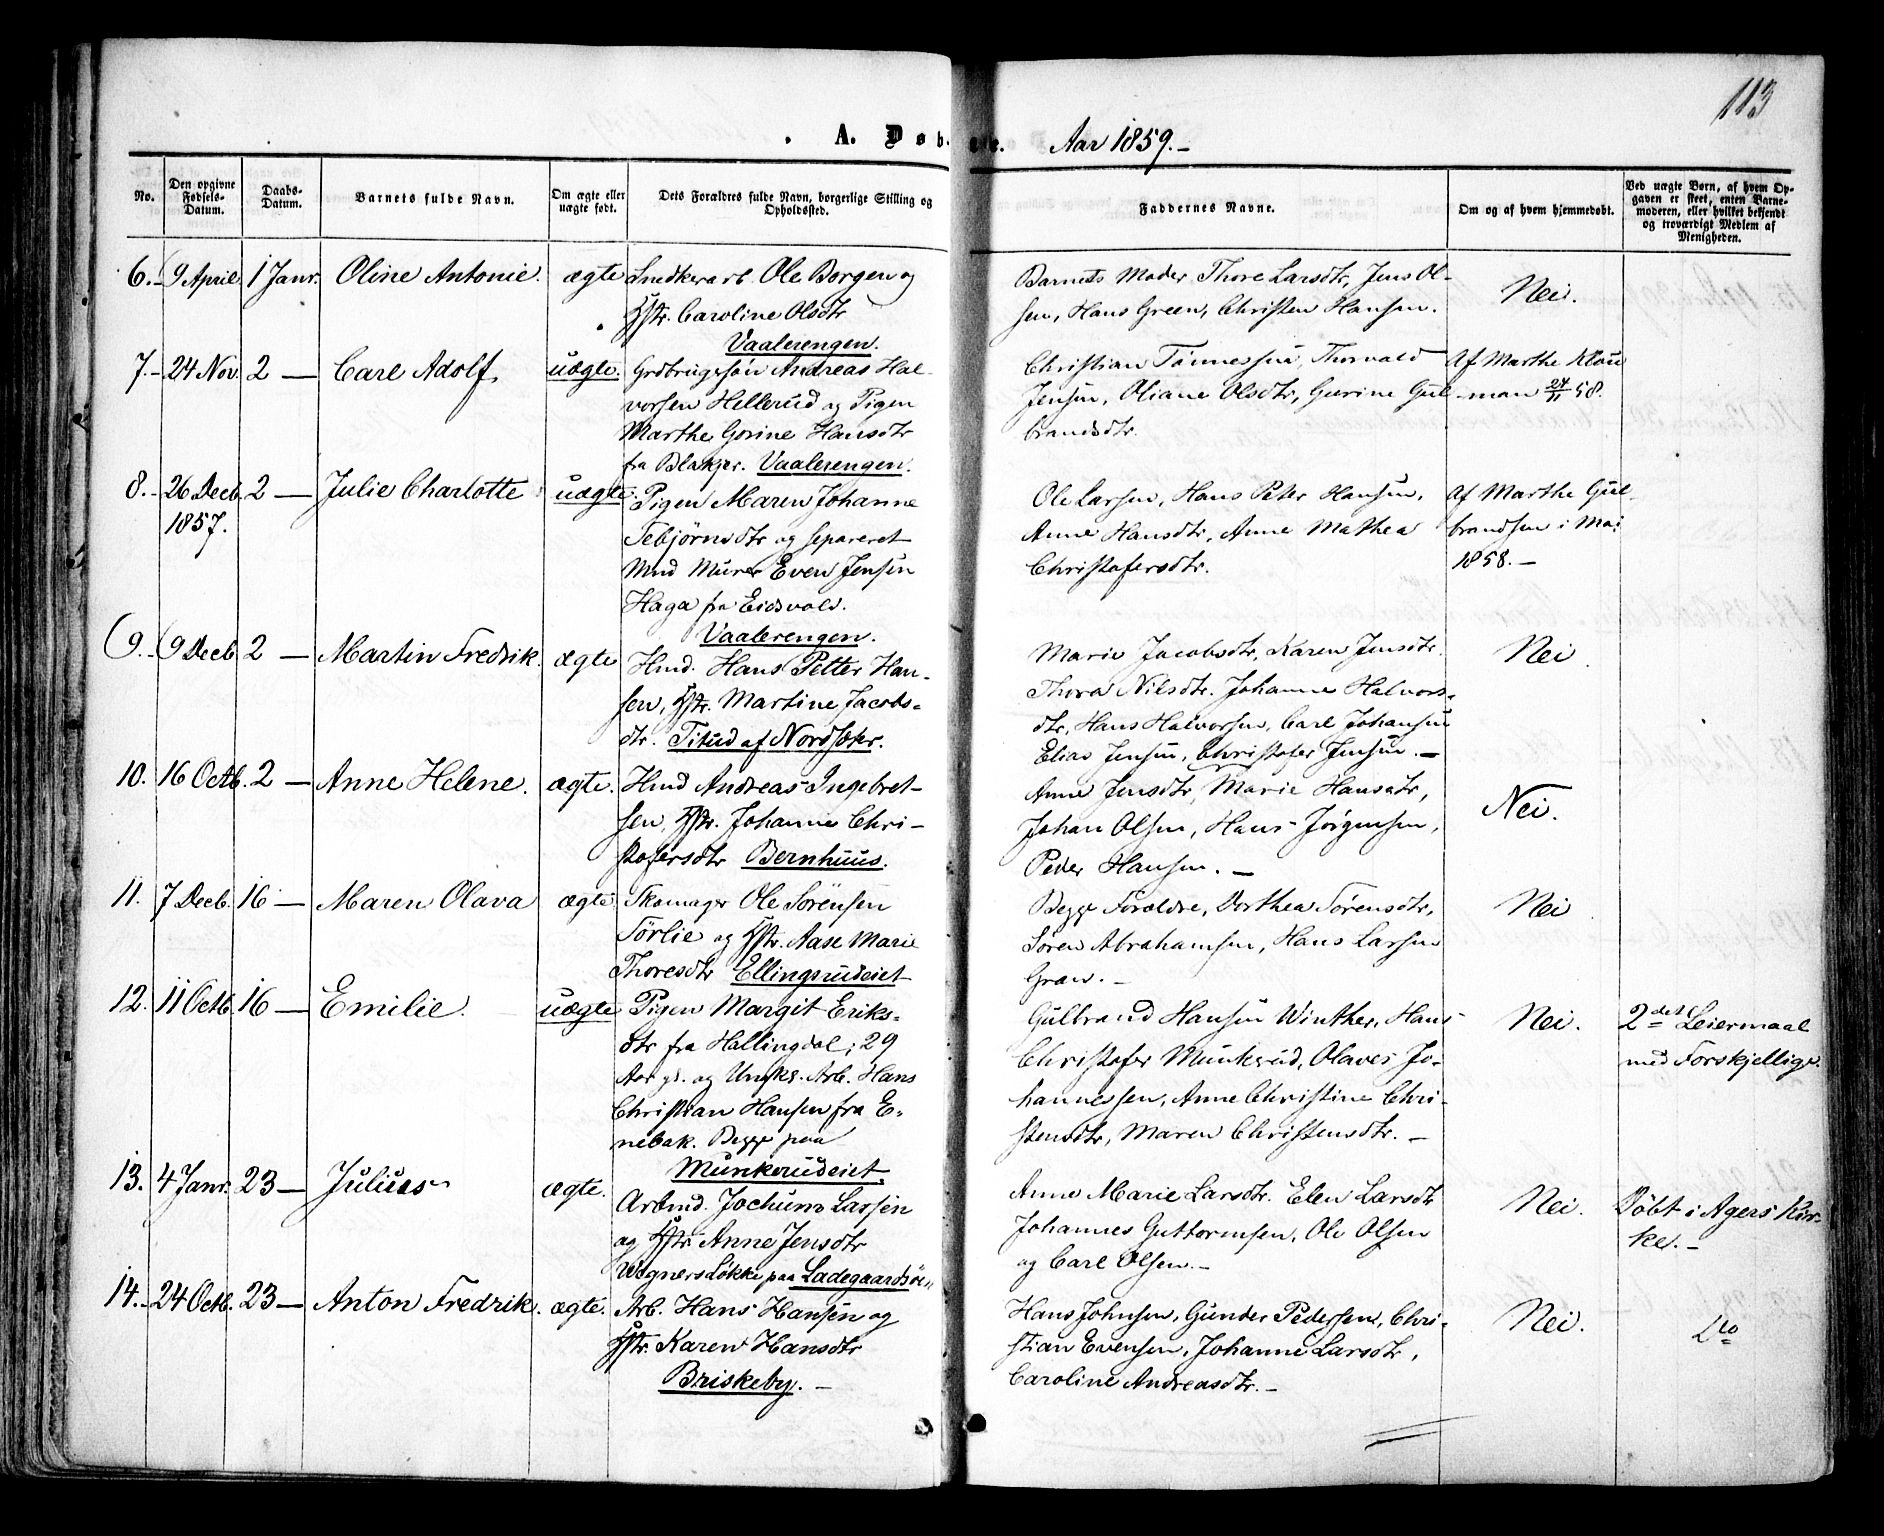 113
A. Døbte. Aar 1859.-
No.
Den opgivne Fødsels-Datum.
Daabs-Datum.
Barnets fulde Navn.
Om ægte eller uægte født.
Dets Forældres fulde Navn, borgerlige Stilling og Opholdssted.
Faddernes Navne.
Om og af hvem hjemmedøbt.
Ved uægte Børn, af hvem Opgaven er skeet, enten Barnemoderen, eller hvilket bekjendt og troværdigt Medlem af Menigheden.
6.- 9 April 1 Janr. Oline Antonie. ægte Snedkerarb. Ole Borgen og
Hstr. Caroline Olsdtr
Vaalerengen.
Barnets Moder Thore Larsdtr, Jens Ol-
sen, Hans Green, Christen Hansen.
Nei.
7.- 24 Nov. 2 — Carl Adolf, uægte. Grdbrugersøn Andreas Hal-
vorsen Hellerud og Pigen
Marthe Gorine Hansdtr
fra Blakjer. Vaalerengen.
Christian Tønnessen, Thorvald
Jensen, Oliane Olsdtr, Gurine Gul-
brandsdtr.
Af Marthe Klou
man 24/11 58.
8.- 26 Decb. 1857. 2 — Julie Charlotte uægte. Pigen Maren Johanne
Tebjørnsdtr og separeret
Mnd Murer Even Jensen
Haga fra Eidsvold.
Vaalerengen.
Ole Larsen, Hans Peter Hansen,
Anne Hansdtr, Anne Mathea
Christofersdtr.
Af Marthe Gul-
brandsen i Mai
1858.—
(9.- (9 Decb. 2 — Martin Fredrik. ægte Hmd. Hans Petter Han-
sen, Hstr. Martine Jacobs-
dtr. Titud af Nordstkr.
Marie Jacobsdtr, Karen Jensdtr.
Thora Nilsdtr. Johanne Halvors-
dtr, Hans Halvorsen, Carl Johansen
Elias Jensen, Christofer Jensen.—
Nei.
10. 16 Octb. 2 — Anne Helene. ægte. Hmd Andreas Ingebret-
sen, Hstr. Johanne Chri-
stofersdtr Bernhuus.
Anne Jensdtr, Marie Hansdtr,
Johan Olsen, Hans Jørgensen,
Peder Hansen.—
Nei.
11. 7 Decb. 16 — Maren Olava ægte. Skomager Ole Sörensen
Törlie og Hstr. Aase Marie
Thoresdtr Ellingsrudeiet
Begge Forældre, Dorthea Sörensdtr,
Sören Abrahamsen, Hans Larsen
Gran.-
Nei
12. 11 Octb. 16 — Emilie. uægte Pigen Margit Eriks-
dtr fra Hallingdal; 29
Aar gl. og Ungk. Arb. Hans
Christian Hansen fra E-
nebak. Begge paa
Munkerudeiet.
Gulbrand Hansen Winther, Hans
Christofer Munkerud, Olaves Jo-
hannessen, Anne Christine Chri-
stensdtr, Maren Christensdtr.—
Nei.
2det Leiermaal
med Forskjellige.
13. 4 Janr. 23 — Julius ægte. Arbmd. Jochum Larsen
og Hstr Anne Jensdtr
Wegners Løkke paa Ladegaardsöe.
Anne Marie Larsdtr. Elen Larsdtr
Johannes Guttormsen, Ole Olsen
og Carl Olsen.—
Nei.
Døbt i Agers Kir-
ke.—
14.- 24 Octb. 23 — Anton Fredrik. ægte. Arb. Hans Hansen og
Hstr. Karen Hansdtr
Briskeby.—
Hans Johnsen, Gunder Pedersen, Chri-
stian Evensen, Johanne Larsdtr,
Caroline Andreasdtr.—
Nei.
Do